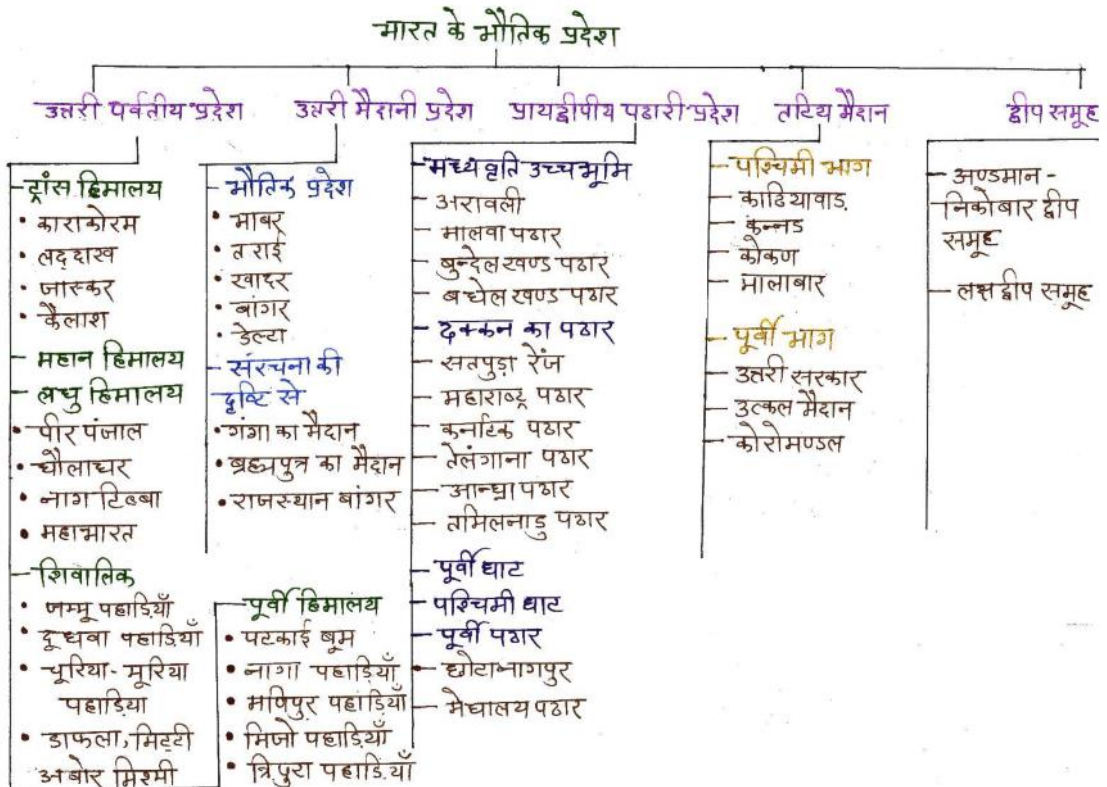 भारत के भौतिक प्रदेश
उत्तरी पर्वतीय प्रदेश
ट्रांस हिमालय
• काराकोरम
• लद्दाख
• जास्कर
• कैलाश
महान हिमालय
लघु हिमालय
• पीर पंजाल
• धौलाधर
• नाग टिब्बा
• महाभारत
शिवालिक
• जम्मू पहाड़ियाँ
• दूधवा पहाड़ियाँ
• चूरिया-मूरिया
पहाड़िया
• डाफला, मिट्टी
अबोर मिश्मी
पूर्वी हिमालय
• पटकाई बूम
• नागा पहाड़ियाँ
• मणिपुर पहाड़ियाँ
• मिजो पहाड़ियाँ
• त्रिपुरा पहाड़ियाँ
उत्तरी मैदानी प्रदेश
भौतिक प्रदेश
• भाबर
• तराई
• खादर
• बांगर
• डेल्टा
संरचना की
दृष्टि से
• गंगा का मैदान
• ब्रह्मपुत्र का मैदान
• राजस्थान बांगर
प्रायद्वीपीय पठारी प्रदेश
मध्यवृति उच्चभूमि
अरावली
मालवा पठार
बुन्देलखण्ड पठार
बघेलखण्ड पठार
दक्कन का पठार
सतपुड़ा रेंज
महाराष्ट्र पठार
कर्नाटक पठार
तेलंगाना पठार
आन्ध्रा पठार
तमिलनाडु पठार
पूर्वी घाट
पश्चिमी घाट
पूर्वी पठार
छोटानागपुर
मेघालय पठार
तटिय मैदान
पश्चिमी भाग
काठियावाड़
कन्नड
कोकण
मालाबार
पूर्वी भाग
उत्तरी सरकार
उत्कल मैदान
कोरोमण्डल
द्वीप समूह
अण्डमान -
निकोबार द्वीप
समूह
लक्षद्वीप समूह